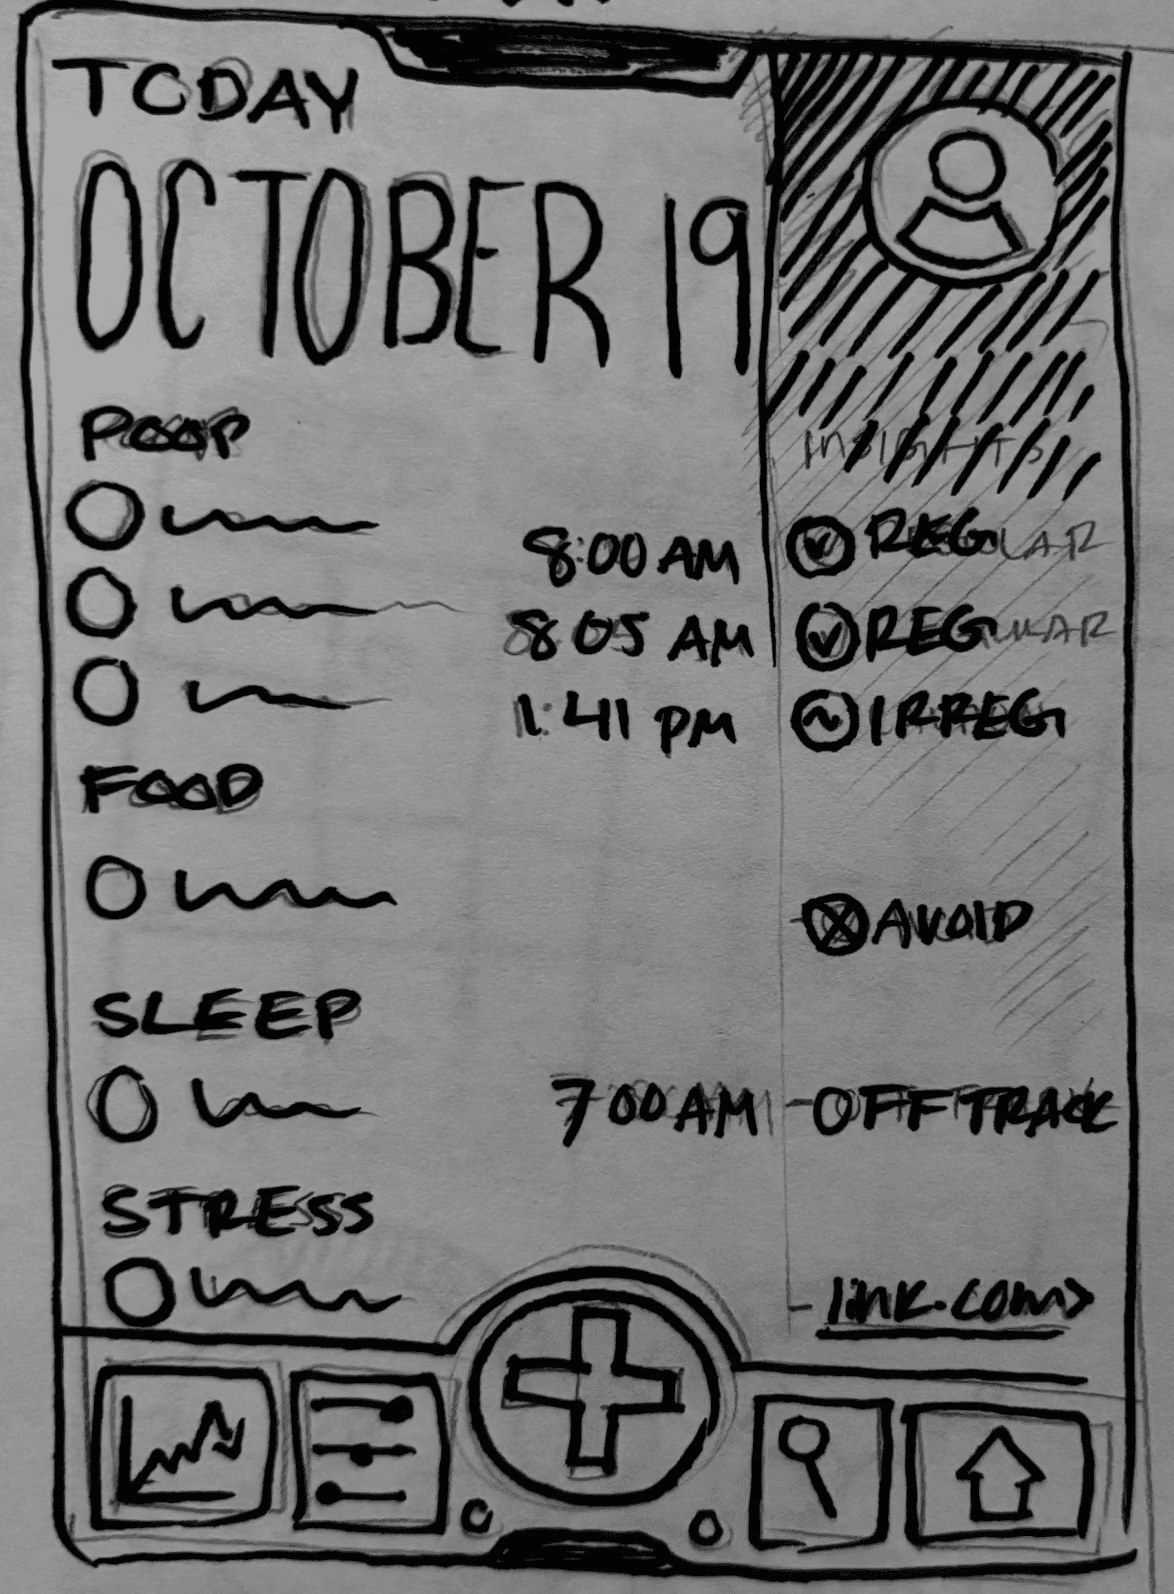 TODAY
OCTOBER 19
POOP
INSIGHTS
8:00 AM REG
8:05 AM REG
1:41 PM IRREG
FOOD
AVOID
SLEEP
7 00 AM OFF TRACK
STRESS
link.com>